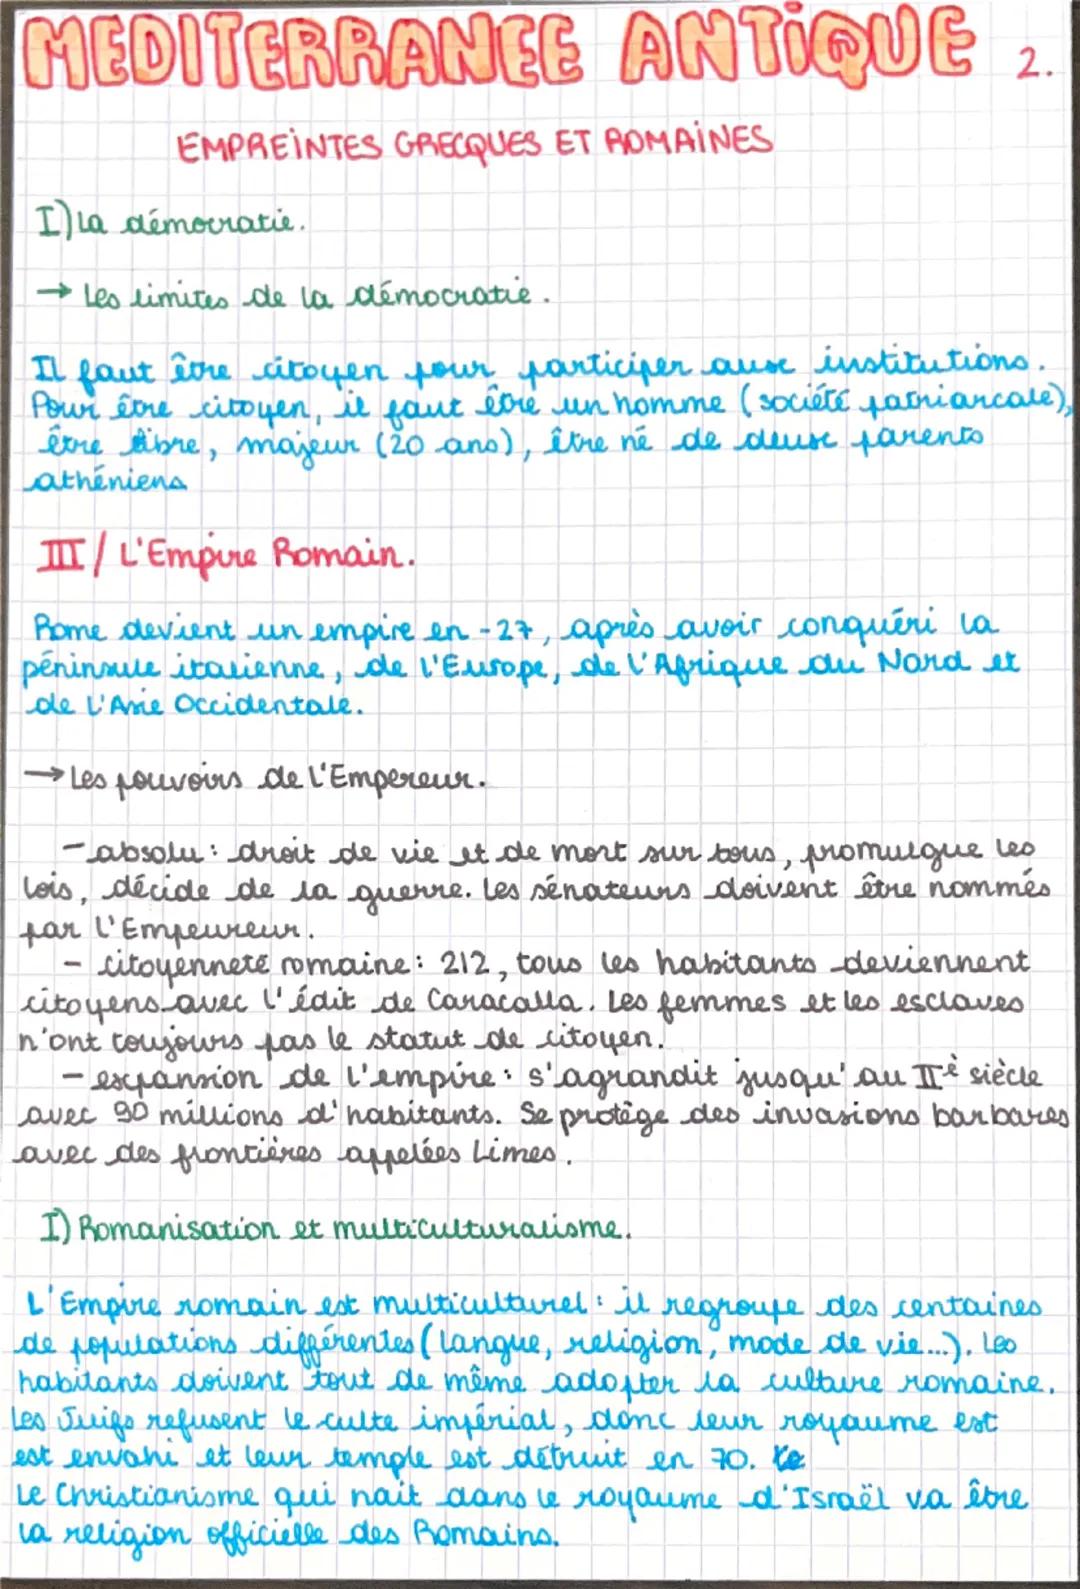 MEDITERRANEE ANTIQUE 2.
EMPREINTES GRECQUES ET ROMAINES
I) La démocratie.
→ Les limites de la démocratie.
Il faut être citoyen pour participer aux institutions.
Pour être citoyen, il faut être un homme (société patriarcale),
être libre, majeur (20 ans), être né de deux parents
athéniens
III/ L'Empire Romain.
Rome devient un empire en -27, après avoir conquéri la
péninsule italienne, de l'Europe, de l'Afrique du Nord et
de l'Asie Occidentale.
→ Les pouvoirs de l'Empereur.
- absolu : droit de vie et de mort sur tous, promulgue les
lois, décide de la guerre. Les sénateurs doivent être nommés
par l'Empeureur.
- citoyenneté romaine : 212, tous les habitants deviennent
citoyens avec l'édit de Caracalla. Les femmes et les esclaves
n'ont toujours pas le statut de citoyen.
- expansion de l'empire : s'agrandit jusqu'au IIè siècle
avec 90 millions d'habitants. Se protège des invasions barbares
avec des frontières appelées Limes.
I) Romanisation et multiculturalisme.
L'Empire romain est multiculturel : il regroupe des centaines
de populations différentes (langue, religion, mode de vie...). Les
habitants doivent tout de même adopter la culture romaine.
Les Juifs refusent le culte impérial, donc leur royaume est
est envahi et leur temple est détruit en 70. Le
Le Christianisme qui nait dans le royaume d'Israël va être
la religion officielle des Romains.